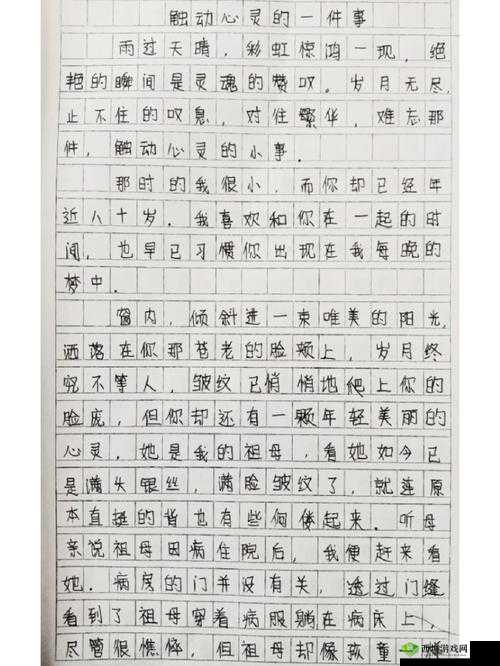 触动心灵的一件事
雨过天晴，彩虹惊鸿一现，绝
艳的瞬间是灵魂的赞叹。岁月无尽，
止不住的叹息，对住繁华，难忘那
件，触动心灵的小事．
那时的我很小，而你却已经年
近八十岁．我喜欢和你在一起的时
间，也早已习惯你出现在我每晚的
梦中．
窗内，倾斜进一束唯美的阳光，
洒落在你那苍老的脸颊上，岁月终
究不等人，皱纹已悄悄地爬上你的
脸庞，但你却还有一颗年轻美丽的
心灵，她是我的祖母，看她如今已
是满头银丝，满脸皱纹了，就连原
本直挺的背也有些佝偻起来．听母
亲说祖母因病住院后，我便赶来看
她．病房的门并没有关，透过门缝
看到了祖母穿着病服躺在病床上，
尽管很憔悴，但祖母却像孩童
游戏网